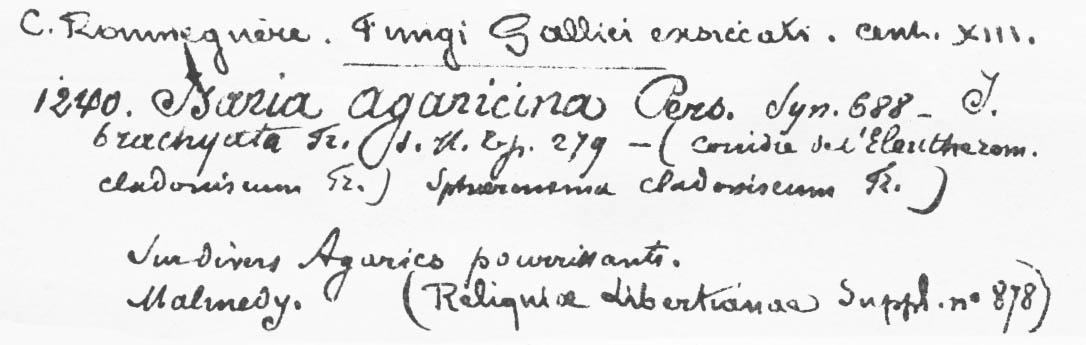 C. Roumeguère. Fungi Gallici exsiccati. cent. XIII.
1240. Isaria agaricina Pers. Syn. 688 - I.
brachyata Fr. S. M. III p. 279 - (conidie de l'Eleutherom.
cladoniscum Fr.) Sphaeronema cladoniscum Fr.)
Sur divers Agarics pourrissants.
Malmedy. (Reliquiæ Libertianae Suppl. nº 878)